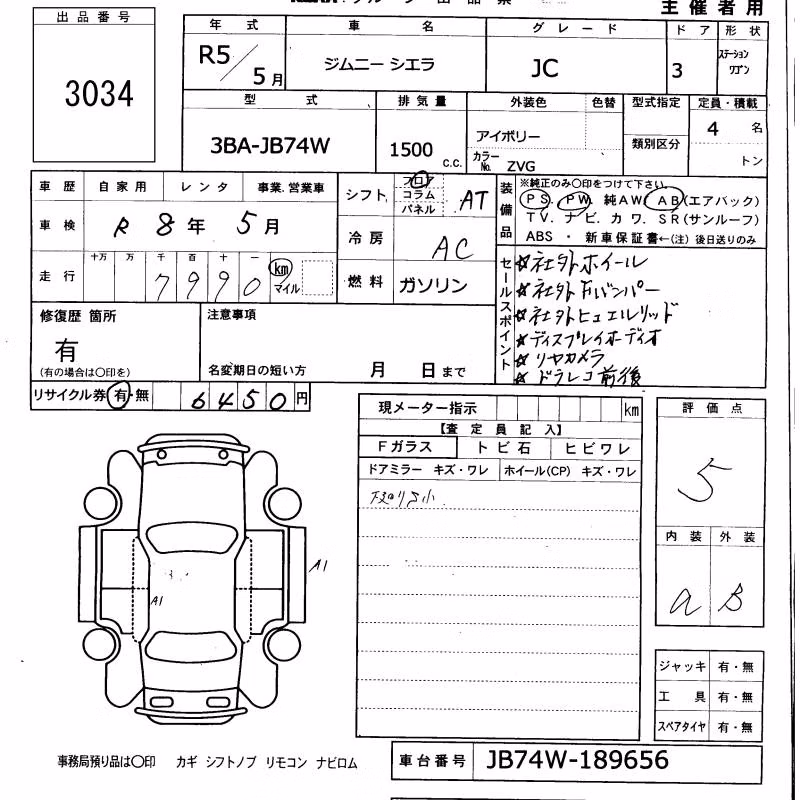 主催者用
出品番号
3034
年式
R5/5月
車名
ジムニー シエラ
グレード
JC
ドア
3
形状
ステーション
ワゴン
型式
3BA-JB74W
排気量
1500 c.c.
外装色
アイボリー
色替
カラーNo. ZVG
型式指定
類別区分
定員・積載
4 名
トン
車歴 自家用 レンタ 事業、営業車
車検 R 8年 5月
走行 十万 万 千 百 十 一
7990 km マイル
シフト フロア コラム パネル AT
冷房 AC
燃料 ガソリン
装備品
※純正のみ〇印をつけて下さい。
PS. PW. 純AW. AB(エアバック)
TV. ナビ. カワ. SR(サンルーフ)
ABS ・ 新車保証書←(注) 後日送りのみ
セールスポイント
☆社外ホイール
☆社外Fバンパー
☆社外ヒュエルリッド
☆ディスプレイオーディオ
☆リヤカメラ
☆ドラレコ前後
修復歴 箇所
有
(有の場合は〇印を)
注意事項
名変期日の短い方 月 日まで
リサイクル券 有・無 6450円
現メーター指示 km
【査定員記入】
Fガラス トビ石 ヒビワレ
ドアミラー キズ・ワレ ホイール(CP) キズ・ワレ
評価点
5
内装 外装
a B
A1
A1
ジャッキ 有・無
工具 有・無
スペアタイヤ 有・無
事務局預り品は〇印 カギ シフトノブ リモコン ナビロム
車台番号 JB74W-189656